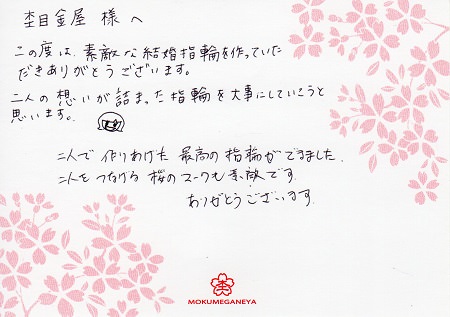 杢目金屋 様 へ
この度は、素敵な結婚指輪を作っていた
だきありがとうございます。
二人の想いが詰まった指輪を大事にしていこうと
思います。
二人で作りあげた最高の指輪ができました。
二人をつなげる桜のマークも素敵です。
ありがとうございます。
杢
MOKUMEGANEYA